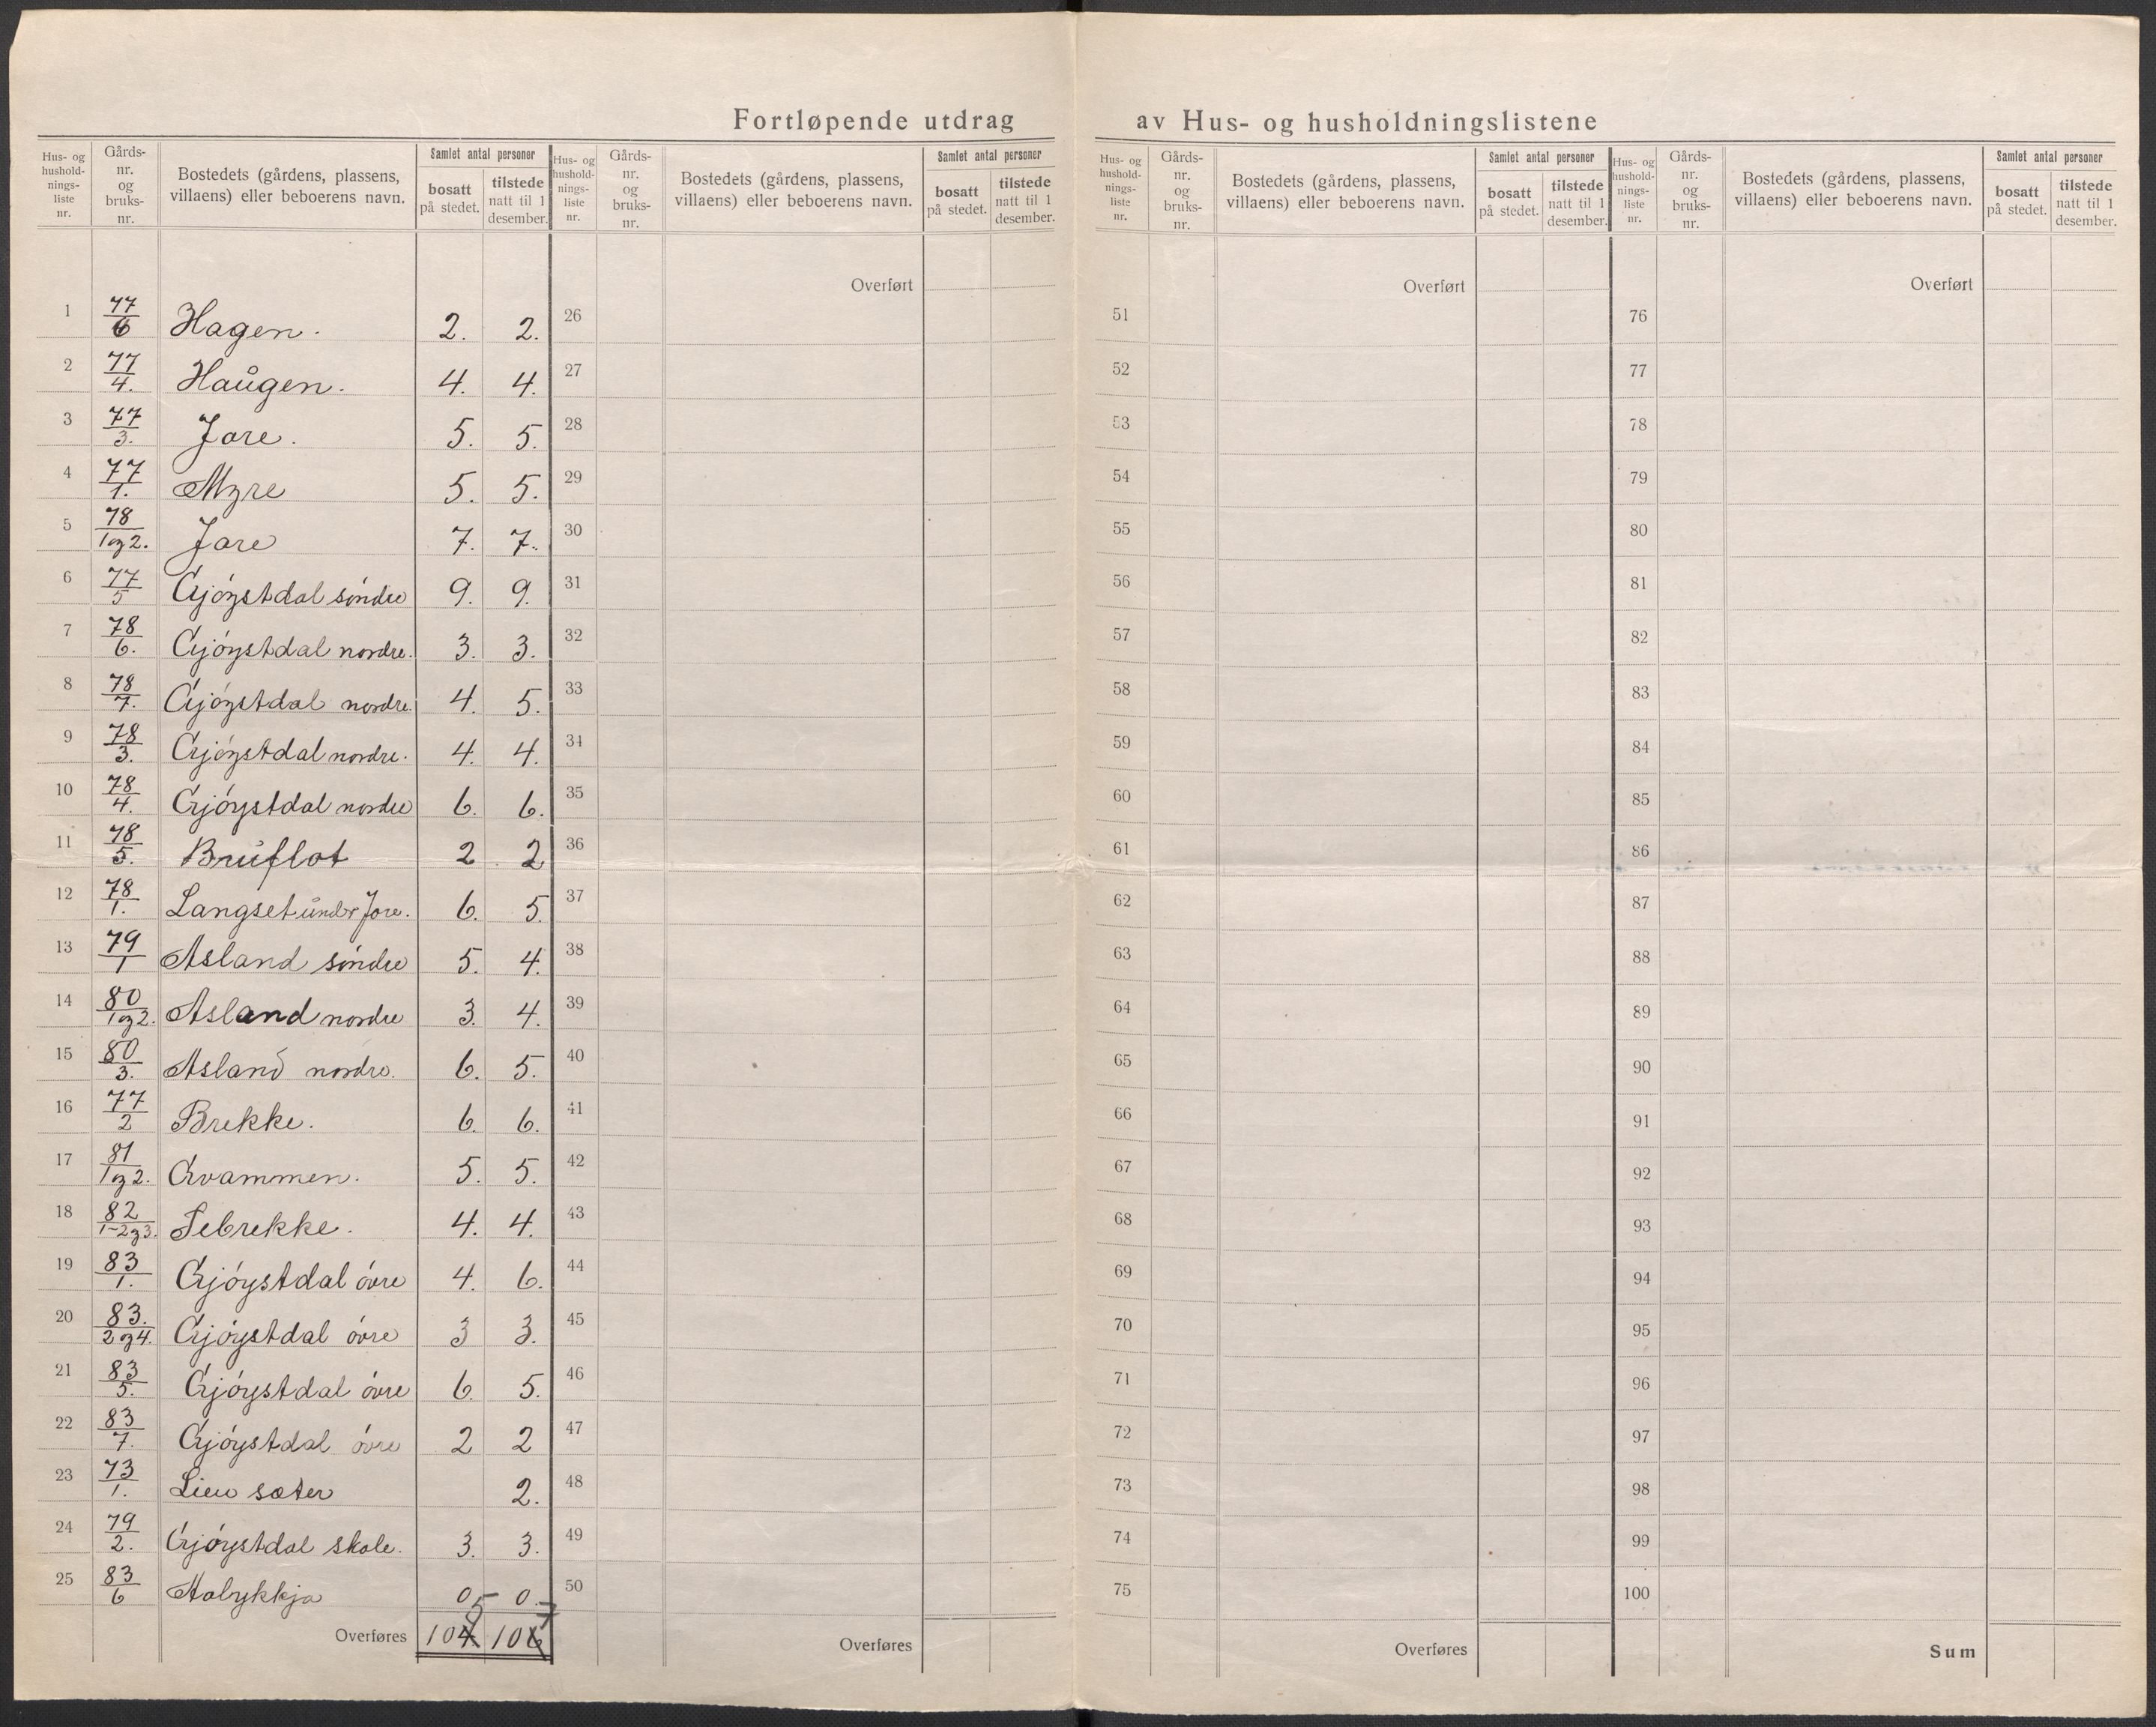 Fortløpende utdrag av Hus- og husholdningslistene
Hus- og hushold- nings- liste nr. | Gårds- nr. og bruks- nr. | Bostedets (gårdens, plassens, villaens) eller beboerens navn. | Samlet antal personer | bosatt på stedet. | tilstede natt til 1 desember.
Hus- og hushold- nings- liste nr. | Gårds- nr. og bruks- nr. | Bostedets (gårdens, plassens, villaens) eller beboerens navn. | Samlet antal personer | bosatt på stedet. | tilstede natt til 1 desember.
Hus- og hushold- nings- liste nr. | Gårds- nr. og bruks- nr. | Bostedets (gårdens, plassens, villaens) eller beboerens navn. | Samlet antal personer | bosatt på stedet. | tilstede natt til 1 desember.
Hus- og hushold- nings- liste nr. | Gårds- nr. og bruks- nr. | Bostedets (gårdens, plassens, villaens) eller beboerens navn. | Samlet antal personer | bosatt på stedet. | tilstede natt til 1 desember.
Overført Overført Overført
1 77/6 Hagen. 2. 2. 26 51 76
2 77/4. Haugen. 4. 4. 27 52 77
3 77/3. Jore. 5. 5. 28 53 78
4 77/1. Myre 5. 5. 29 54 79
5 78/1og2. Jore 7. 7. 30 55 80
6 77/5 Gjöystdal söndre 9. 9. 31 56 81
7 78/6. Gjöystdal nordre. 3. 3. 32 57 82
8 78/7. Gjöystdal nordre. 4. 5. 33 58 83
9 78/3. Gjöystdal nordre. 4. 4. 34 59 84
10 78/4. Gjöystdal nordre 6. 6. 35 60 85
11 78/5. Bruflot 2 2 36 61 86
12 78/1. Langset under Jore. 6. 5. 37 62 87
13 79/1 Asland söndre 5. 4. 38 63 88
14 80/1og2. Asland nordre 3. 4. 39 64 89
15 80/3. Asland nordre. 6. 5. 40 65 90
16 77/2 Brekke. 6. 6. 41 66 91
17 81/1og2. Kvammen. 5. 5. 42 67 92
18 82/1-2og3. Sebrekke. 4. 4. 43 68 93
19 83/1. Gjöystdal övre 4. 6. 44 69 94
20 83./2og4. Gjöystdal övre 3 3. 45 70 95
21 83/5. Gjöystdal övre 6. 5. 46 71 96
22 83/7. Gjöystdal övre 2 2 47 72 97
23 73/1. Lien sæter 2. 48 73 98
24 79/2. Gjöystdal skole. 3. 3. 49 74 99
25 83/6 0 0. 50 75 100
Overføres 105 107 Overføres Overføres Sum